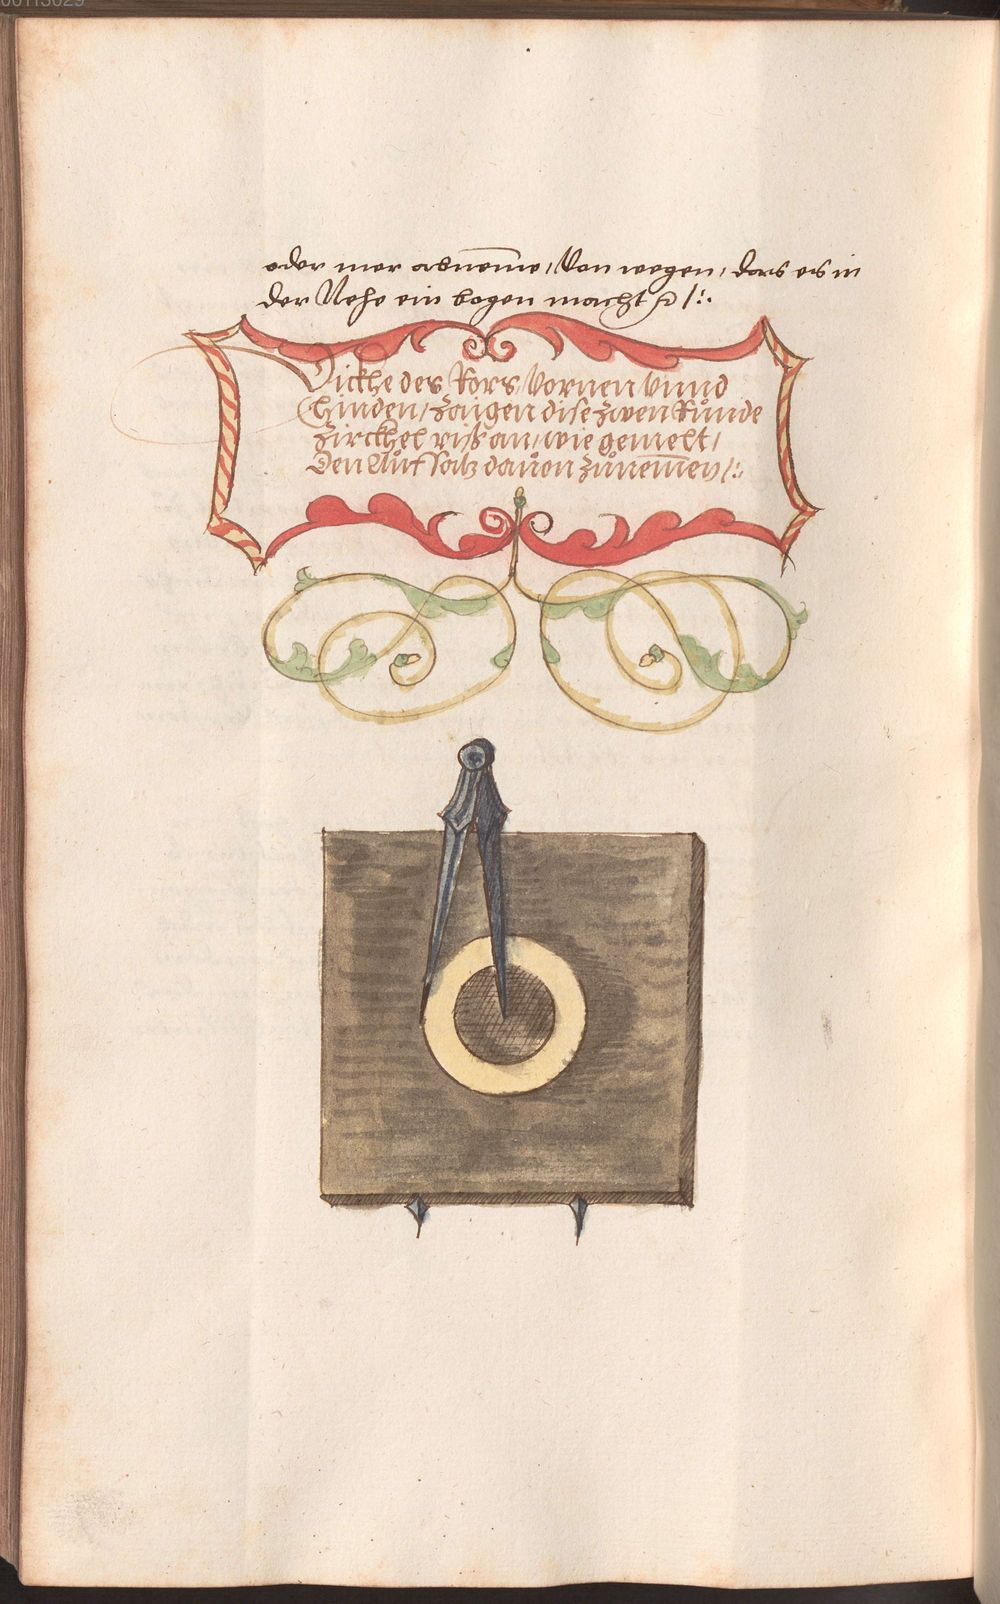 00113029
oder mer abneme, Von wegen, das es in
der Nehe ein bogen macht /:.
Dickhe des Rors, Vornen Vnnd
Hinden, Zaigen dise zwen Runde
Zirckhel riss an, wie gemelt,
Den Auf Satz dauon zunemen /:.